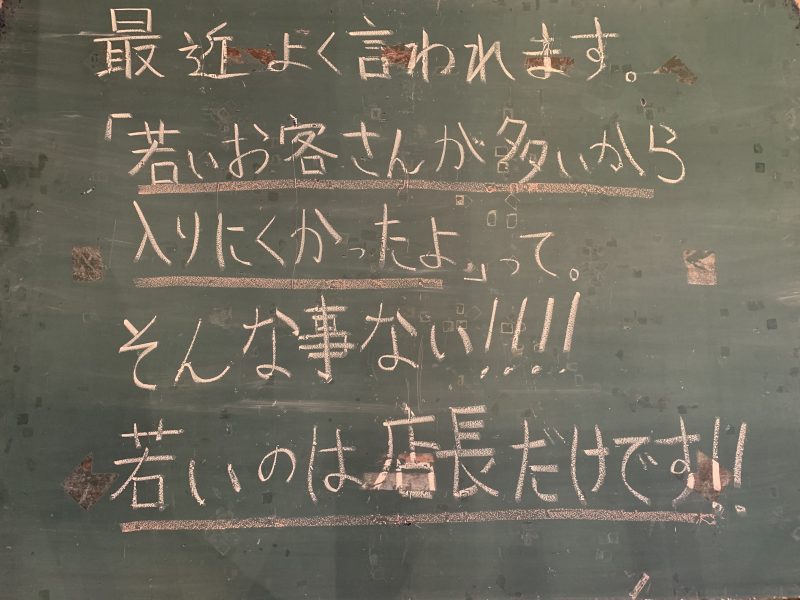 最近よく言われます。
「若いお客さんが多いから
入りにくかったよ」って。
そんな事ない!!!!
若いのは店長だけです!!